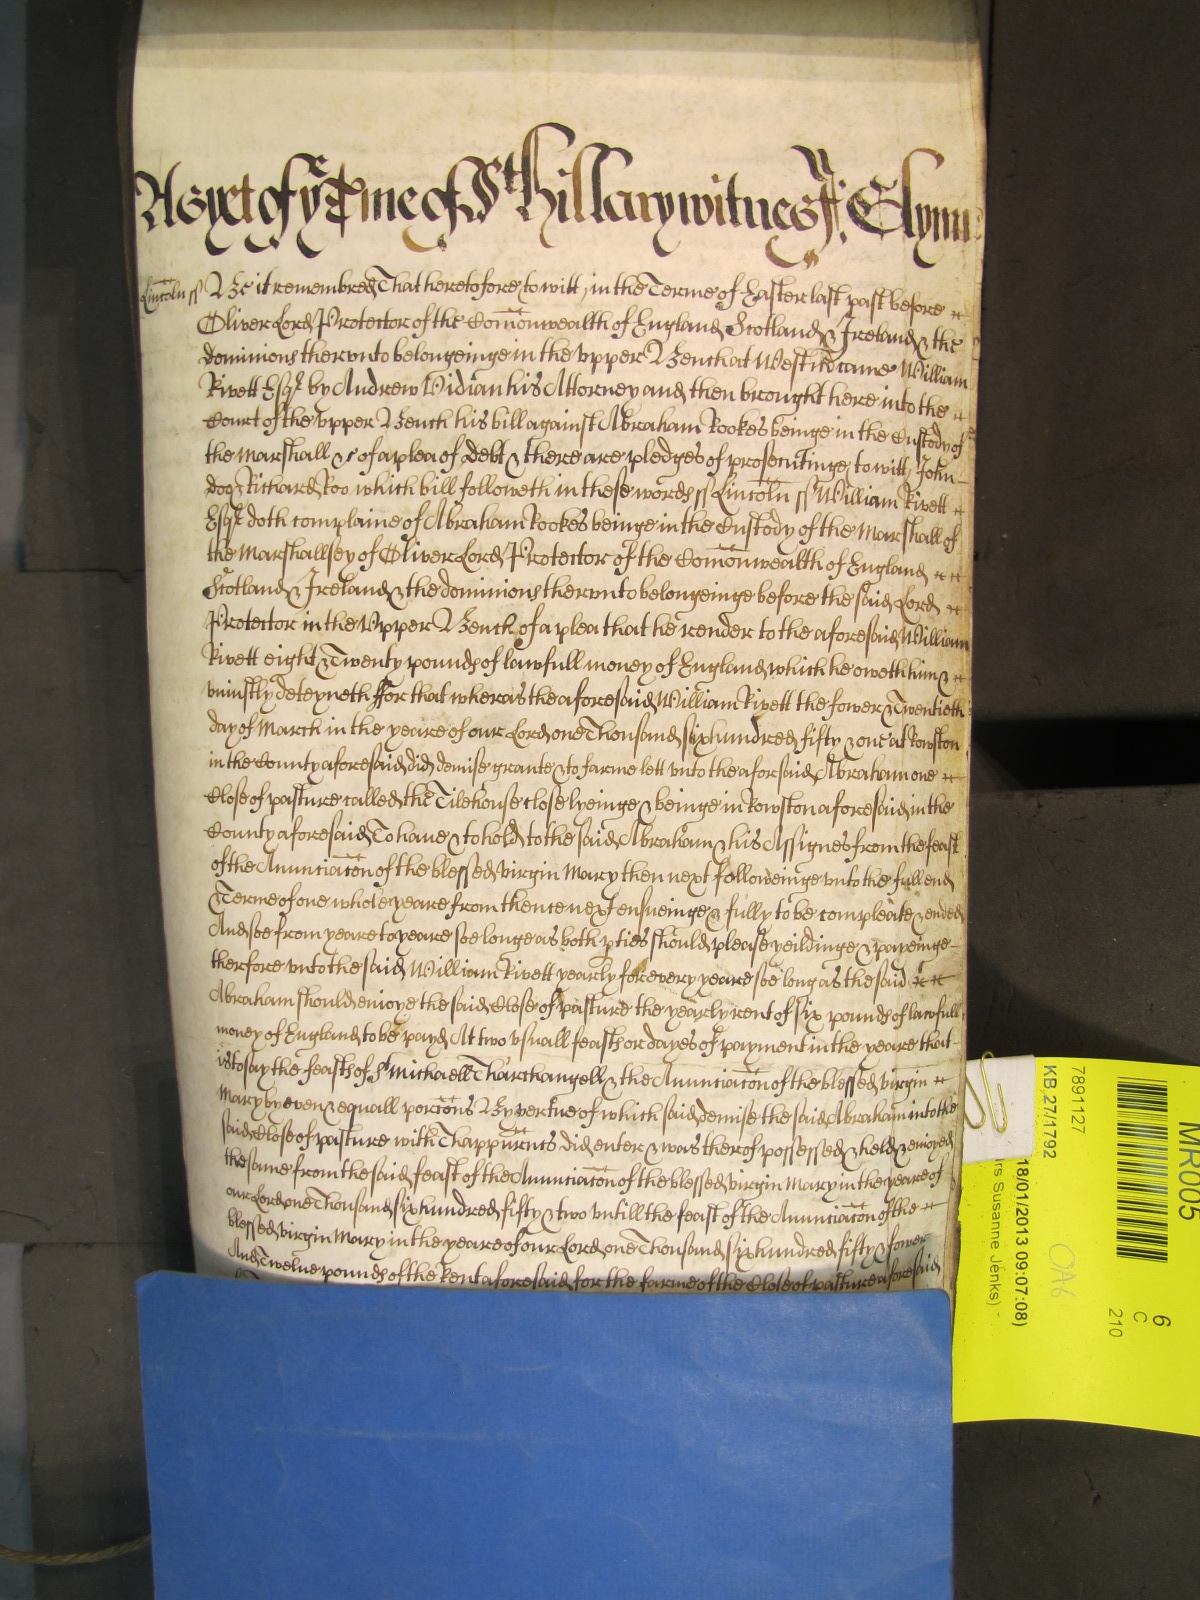 As yet of ye Tme of St Hillary witnes J: Glynn
Lincoln ss Be it remembred That heretofore, to witt, in the Terme of Easter last past before
Oliver Lord Protector of the Com̄onwealth of England Scotland & Ireland & the
dominions thervnto belongeinge in the vpper Bench at Westm̄ came William
Rivett Esqr by Andrew Vidian his Attorney and then brought here into the
Court of the vpper Bench his bill against Abraham Rookes beinge in the Custody of
the Marshall &c of a plea of debt & there are pledges of prosecutinge, to witt, John
doo & Richard Roo which bill followeth in these words ss Lincoln ss William Rivett
Esqr doth complaine of Abraham Rookes beinge in the Custody of the Marshall of
the Marshallsey of Oliver Lord Protector of the Com̄onwealth of England
Scotland & Ireland & the dominions thervnto belongeinge before the said Lord
Protector in the Vpper Bench of a plea that he render to the aforesaid William
Rivett eight & Twenty pounds of lawfull money of England which he oweth him &
vniustly deteyneth ffor that wheras the aforesaid William Rivett the fower & Twentieth
day of March in the yeare of our Lord one Thousand six hundred fifty & one at Rowston
in the County aforesaid did demise grante & to farme lett vnto the aforsaid Abraham one
Close of pasture called the Tilehouse close lyeinge & beinge in Rowston aforesaid in the
County aforesaid To have & to hold to the said Abraham & his Assignes from the feast
of the Annunciac̄on of the blessed virgin Mary then next followeinge vnto the full end
& Terme of one whole yeare from thence next ensueinge & fully to be compleate & ended
And soe from yeare to yeare soe longe as both pties should please yeildinge & payeinge
therfore vnto the said William Rivett yearly for every yeare soe long as the said
Abraham should enioye the said Close of pasture the yearly rent of six pounds of lawfull
money of England to be payd At two vsuall feasts or dayes of payment in the yeare that
is to say the feasts of St Michaell Tharchangell & the Annunciac̄on of the blessed virgin
Mary by even & equall porc̄ons By vertue of which said demise the said Abraham into the
said Close of pasture with Thappurtn̄ts did enter & was therof possessed & held & enioyed
the same from the said feast of the Annunciac̄on of the blessed virgin Mary in the yeare of
our Lord one Thousand six hundred fifty & two vntill the feast of the Annunciac̄on of the
blessed virgin Mary in the yeare of our Lord one Thousand six hundred fifty & fower
And Twelve pounds of the Rent aforesaid for the farme of the Close of pasture aforesaid
MR005
6
C
210
OA6
7891127
KB 27/1792
18/01/2013 09:07:08)
rs Susanne Jenks) -